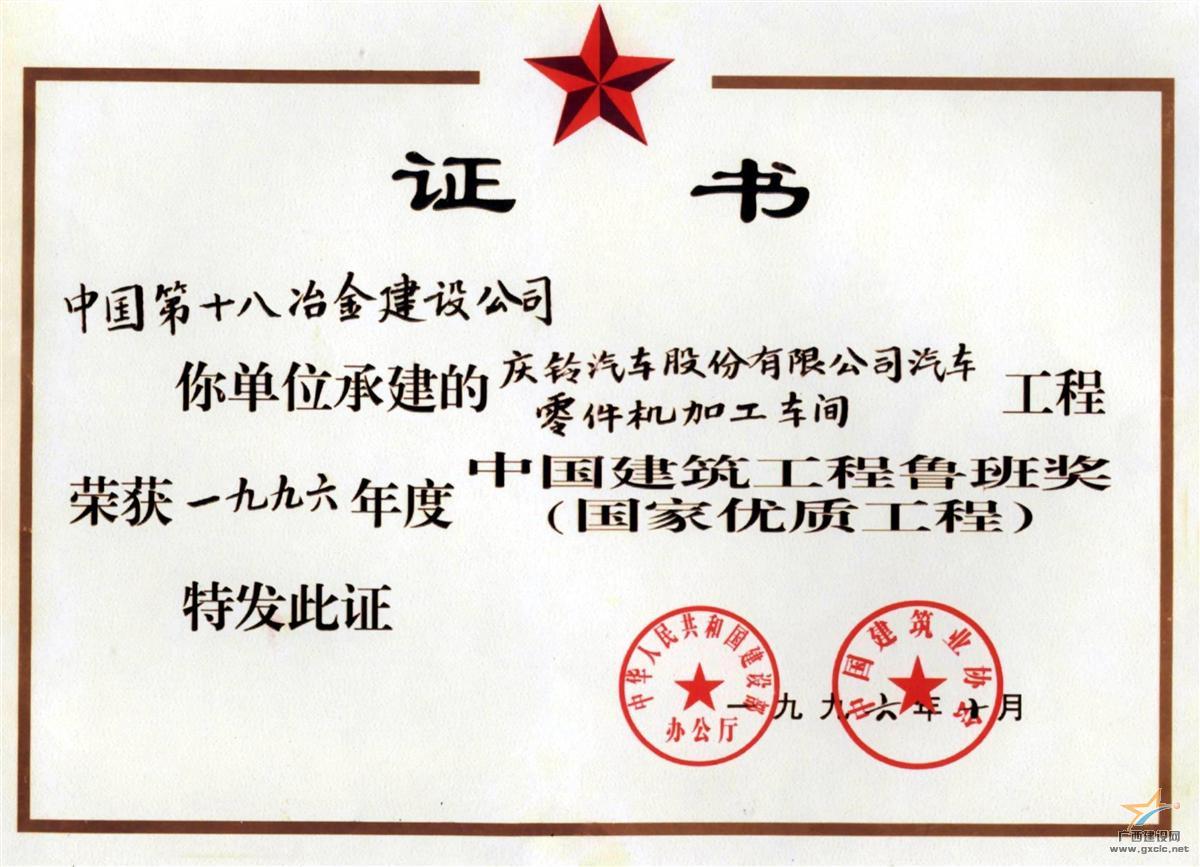 证书
中国第十八冶金建设公司
你单位承建的庆铃汽车股份有限公司汽车
零件机加工车间工程
荣获一九九六年度中国建筑工程鲁班奖
（国家优质工程）
特发此证
中华人民共和国建设部
办公厅
中国建筑业协会
一九九六年十月
广西建设网
www.gxcic.net